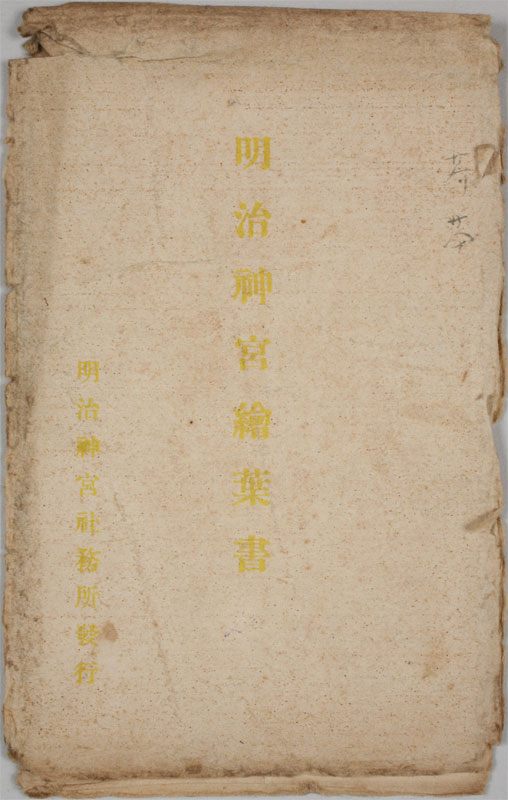 明治神宮繪葉書
明治神宮社務所發行